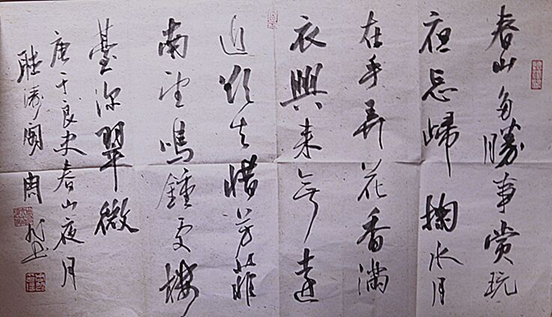 春山多勝事賞玩
夜忘歸掬水月
在手弄花香滿
衣興來無遠
近欲去惜芳菲
南望鳴鍾處樓
臺深翠微
唐于良史春山夜月
聽濤閣